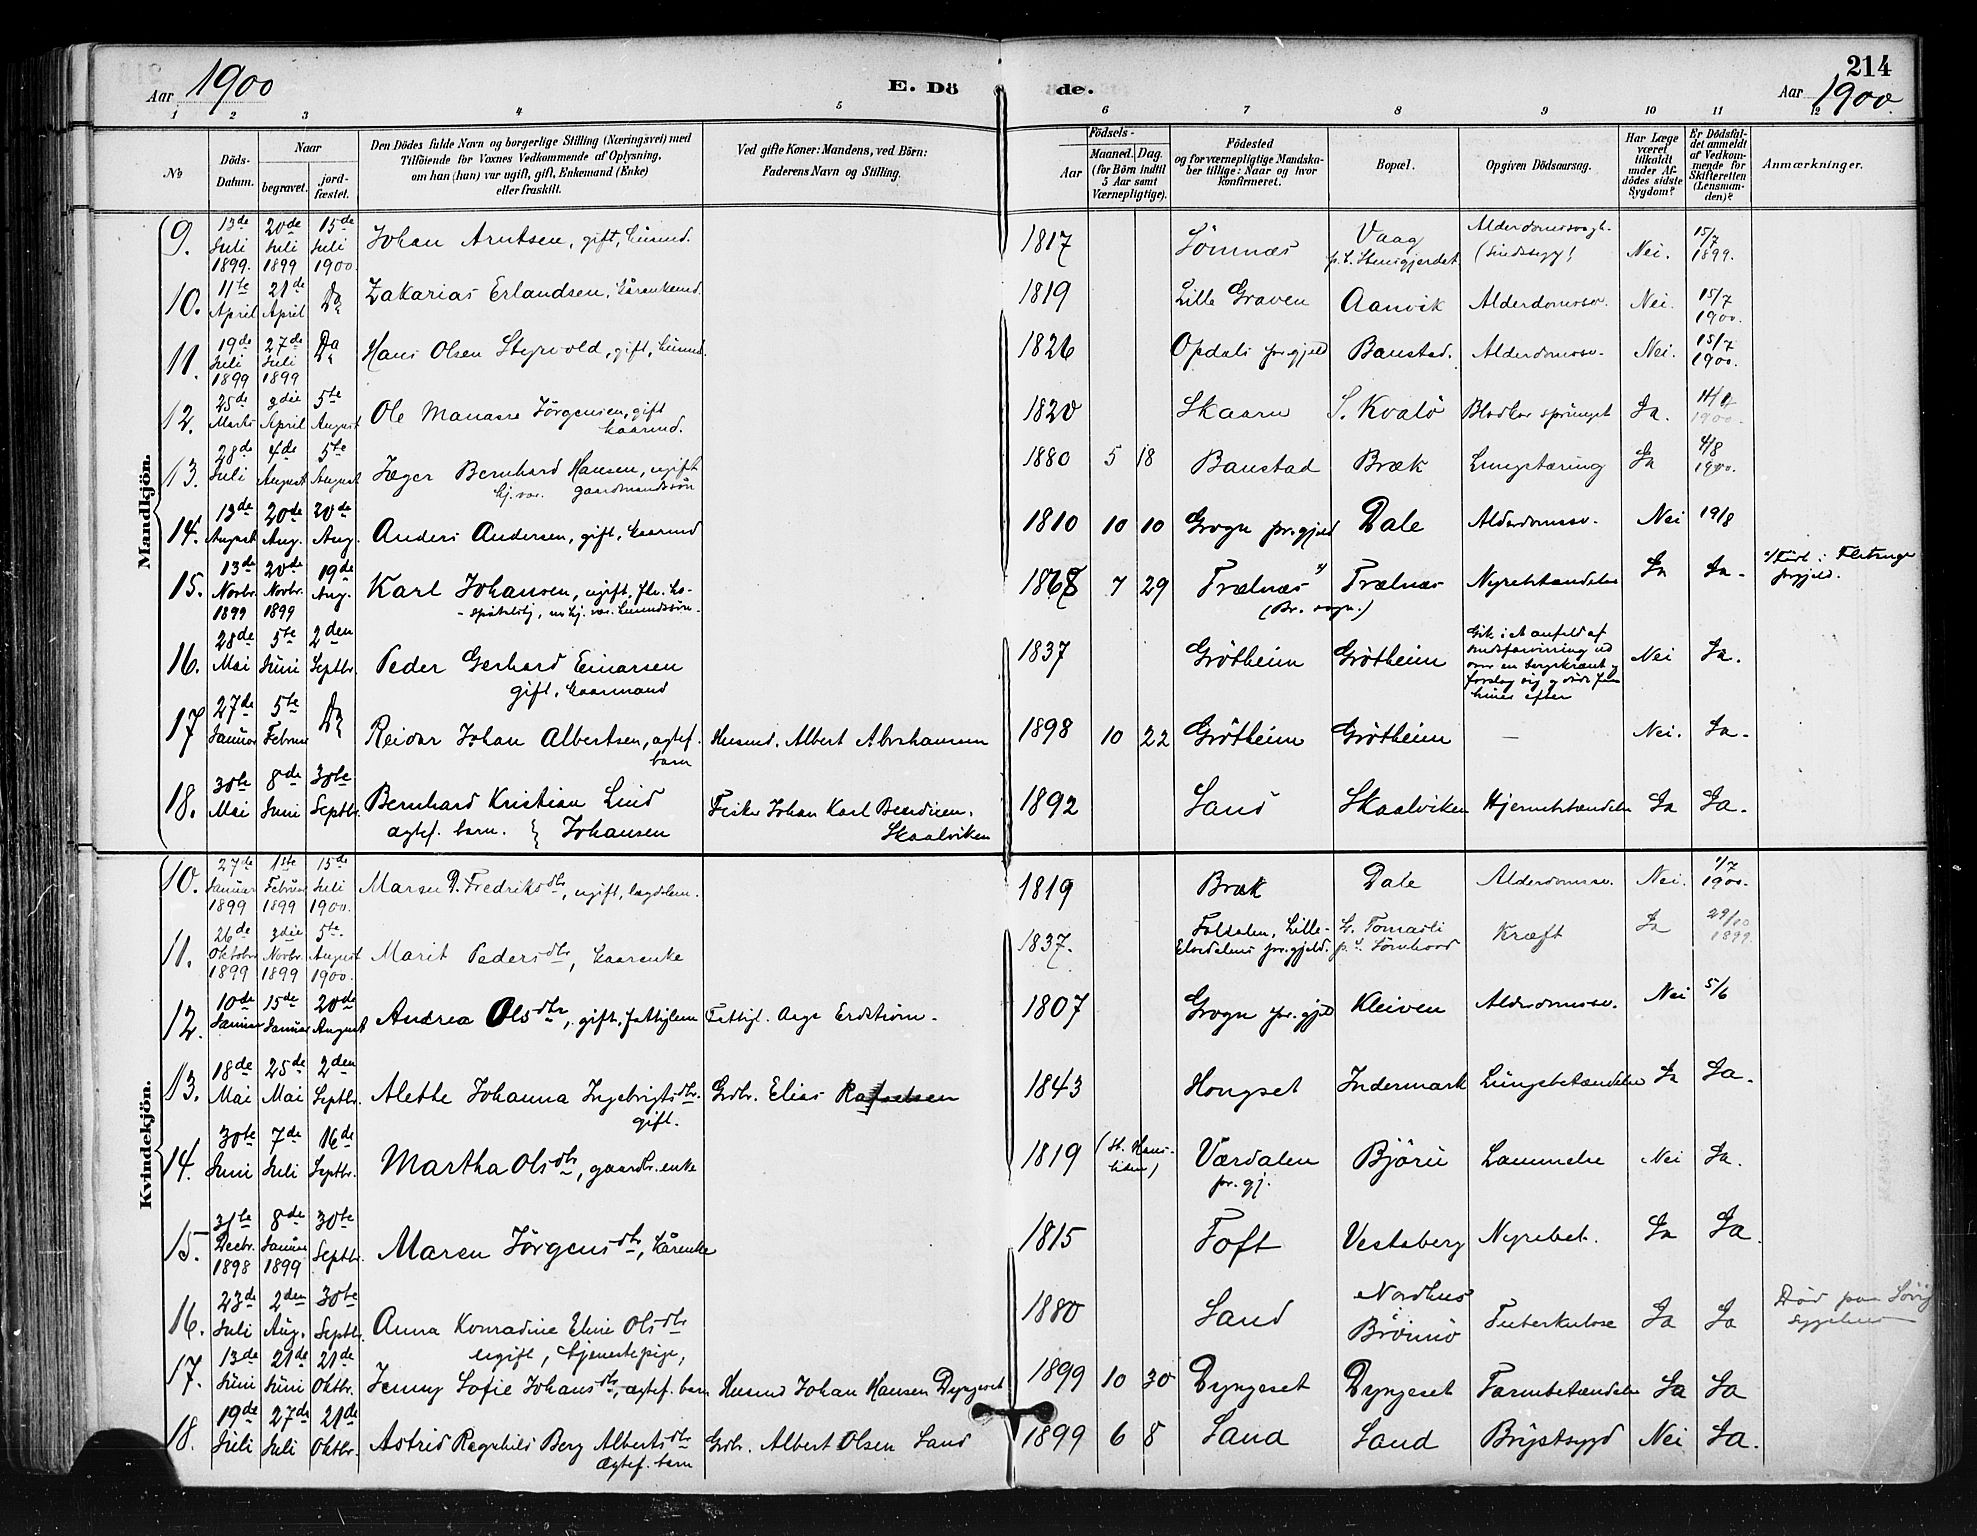 214
Aar 1900
E. Dö de.
Aar 1900
1 2 3 4 5 6 7 8 9 10 11 12
No
Döds-Datum.
Naar
begravet.
jord-fæstet.
Den Dödes fulde Navn og borgerlige Stilling (Næringsvei) med
Tilföiende for Voxnes Vedkommende af Oplysning,
om han (hun) var ugift, gift, Enkemand (Enke)
eller fraskilt.
Ved gifte Koner: Mandens, ved Börn:
Faderens Navn og Stilling.
Födsels-
Aar
Maaned. Dag.
(for Börn indtil
5 Aar samt
Værnepligtige).
Födested
og for værnepligtige Mandska-
ber tillige: Naar og hvor
konfirmeret.
Bopæl.
Opgiven Dödsaarsag.
Har Læge
været
tilkaldt
under Af-
dödes sidste
Sygdom?
Er Dödsfal-
det anmeldt
af Vedkom-
mende for
Skifteretten
(Lensman-
den)?
Anmærkninger.
Mandkjön.
9. 13de Juli 1899. 20de Juli 1899 15de Juli 1900. Johan Arntsen, gift, husmd. 1817 Sömnæs Vaag p. L. Stensgjerdet Nei. 15/7 1899.
10. 11te April 21de April Do Zakarias Erlandsen, kårenkemd. 1819 Lille Graven Aanvik Alderdomssv. Nei. 15/7 1900.
11. 19de Juli 1899 27de Juli 1899 Do Hans Olsen Styrvold, gift, husmd. 1826 Opdals pr.gjeld Baustad. Alderdomssv. Nei. 15/7 1900.
12. 25de Marts 3die April 5te August Ole Manasse Jörgensen, gift kaarmd. 1820 Skaarn S. Kvalö Blodkar sprunget Ja. 1900.
13. 28de Juli 4de August 5te August Jæger Bernhard Hansen, ugift hj.vær. gaardmandssön 1880 5 18 Baustad Bræk Lungetæring Ja 4/8 1900.
14. 13de August 20de Aug. 20de Aug. Anders Andersen, gift, kaarmd 1810 10 10 Grogn pr.gjeld Dale Alderdomssv. Nei 19/8
15. 13de Novbr. 1899 20de Novbr. 1899 19de Aug. Karl Johansen, ugift, hj. vær. husmdssön. 1867 7 29 Trælnæs (Br. sogn.) Trælnæs Nyrebetændelse Ja Ja. prgjeld.
16. 28de Mai 5te Juni 2den Septbr. Peder Gerhard Einarsen gift, kaarmand 1837 Grötheim Grötheim Gik i et anfald af sindsforvirring ud over en bergskrænt og forslog sig og döde efter Nei Ja.
17 27de Januar 5te Februar Do Reidar Johan Albertsen, ægtef. barn Husmd. Albert Abrahamsen 1898 10 22 Grötheim Grötheim — Nei. Ja.
18. 30te Mai 8de Juni 30te Septbr. Bernhard Kristian Lind Johansen ægtef. barn. Fisker Johan Karl Berntsen, Skaalviken 1892 Sand Skaalviken Hjernebetændelse Ja Ja.
Kvindekjön.
10. 27de Januar 1899 1ste Februar 1899 15de Juli 1900. Maren D. Fredriksdtr, ugift, lægdslem. 1819 Bræk Dale Alderdomssv. Nei. 1/7 1900.
11. 26de Oktober 1899 3die Novbr. 1899 5te August 1900. Marit Pedersdtr, kaarenke 1837. Foldalen, Lille-Elvedalens pr.gjeld. L. Tomasli p. L. Lörnhord Kræft Ja 1899.
12. 10de Januar 15de Januar 20de August Andrea Olsdtr, gift, fattiglem Fattigl. Aage Erdström. 1807 Grogn pr.gjeld Kleiven Alderdomssv. Nei 5/6
13. 18de Mai 25de Mai 2den Septbr. Alethe Johanna Ingebrigtsdtr. gift. Grdbr. Elias Rafaelsen 1843 Hongset Indermark Lungebetændelse Ja Ja.
14. 30te Juni 7de Juli 16de Septbr. Martha Olsdtr, gaardbr. enke 1819 (St. Hans-tiden) Værdalen pr.gj. Björu Lammelse Nei Ja.
15. 31te Decbr. 1898 8de Januar 1899 30te Septbr. Maren Jörgensdtr, kårenke 1815 Toft Vestaberg Nyrebet. Ja Ja.
16. 23de Juli 2den Aug. 30te Septbr. Anna Konradine Eline Olsdtr ugift, tjenestepige, 1880 Sand Nordhus Brönnö Tuberkulose Ja Ja Död paa Sövig sygehus
17. 13de Juni 21de Juni 21de Oktbr. Jenny Sofie Johansdtr, ægtef. barn Husmd Johan Hansen Dyngeset 1899 10 30 Dyngeset Dyngeset Tarmbetændelse Ja Ja
18. 19de Juli 27de Juli 21de Oktbr. Astrid Ragnhild Berg Albertsdtr Ægtef. barn Grdbr. Albert Olsen Sand 1899 6 8 Sand Sand Brystsygd Nei Ja.